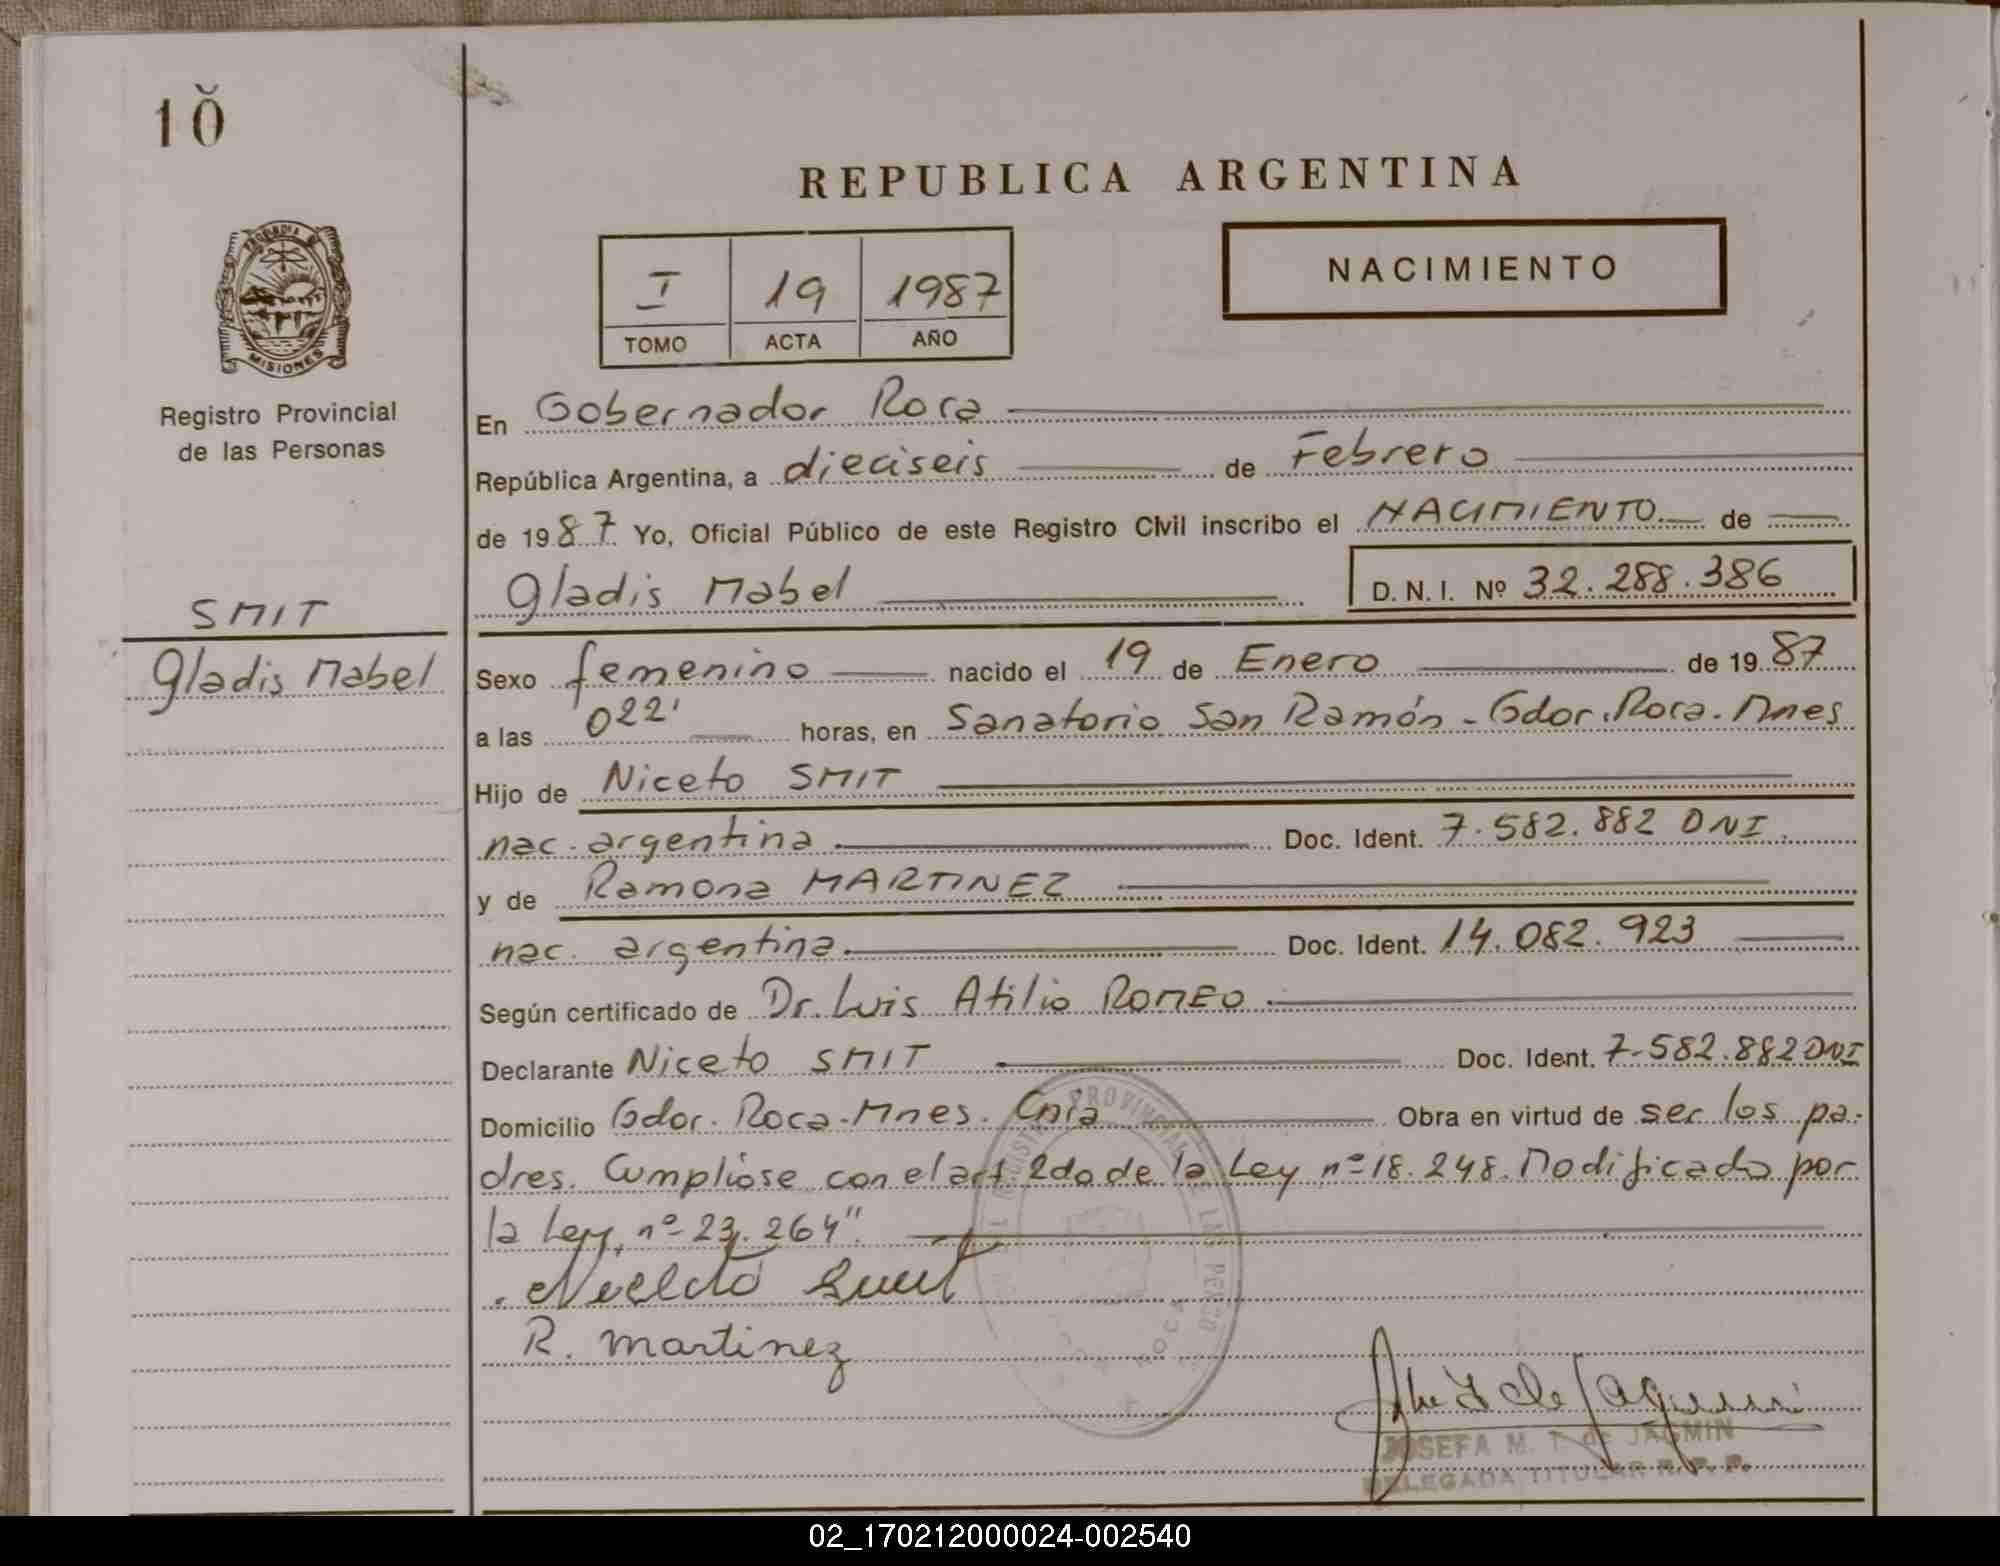 10
REPUBLICA ARGENTINA
I 19 1987
TOMO ACTA AÑO
NACIMIENTO
PROVINCIA DE
MISIONES
Registro Provincial
de las Personas
SMIT
Gladis Mabel
En Gobernador Roca
República Argentina, a dieciseis de Febrero
de 1987 Yo, Oficial Público de este Registro Civil inscribo el NACIMIENTO de
Gladis Mabel D. N. I. Nº 32.288.386
Sexo femenino nacido el 19 de Enero de 1987
a las 022' horas, en Sanatorio San Ramón - Gdor. Roca. Mnes
Hijo de Niceto SMIT
nac. argentina Doc. Ident. 7.582.882 DNI.
y de Ramona MARTINEZ
nac. argentina. Doc. Ident. 14.082.923
Según certificado de Dr. Luis Atilio ROMEO
Declarante Niceto SMIT Doc. Ident. 7.582.882 DNI
Domicilio Gdor. Roca - Mnes. Obra en virtud de ser los pa-
dres. Cumplióse con el art. 2do de la Ley nº 18.248. Modificada por
la Ley nº 23.264".
R. martinez
JOSEFA M. T. de JAGMIN
DELEGADA TITULAR R. P. P.
02_170212000024-002540